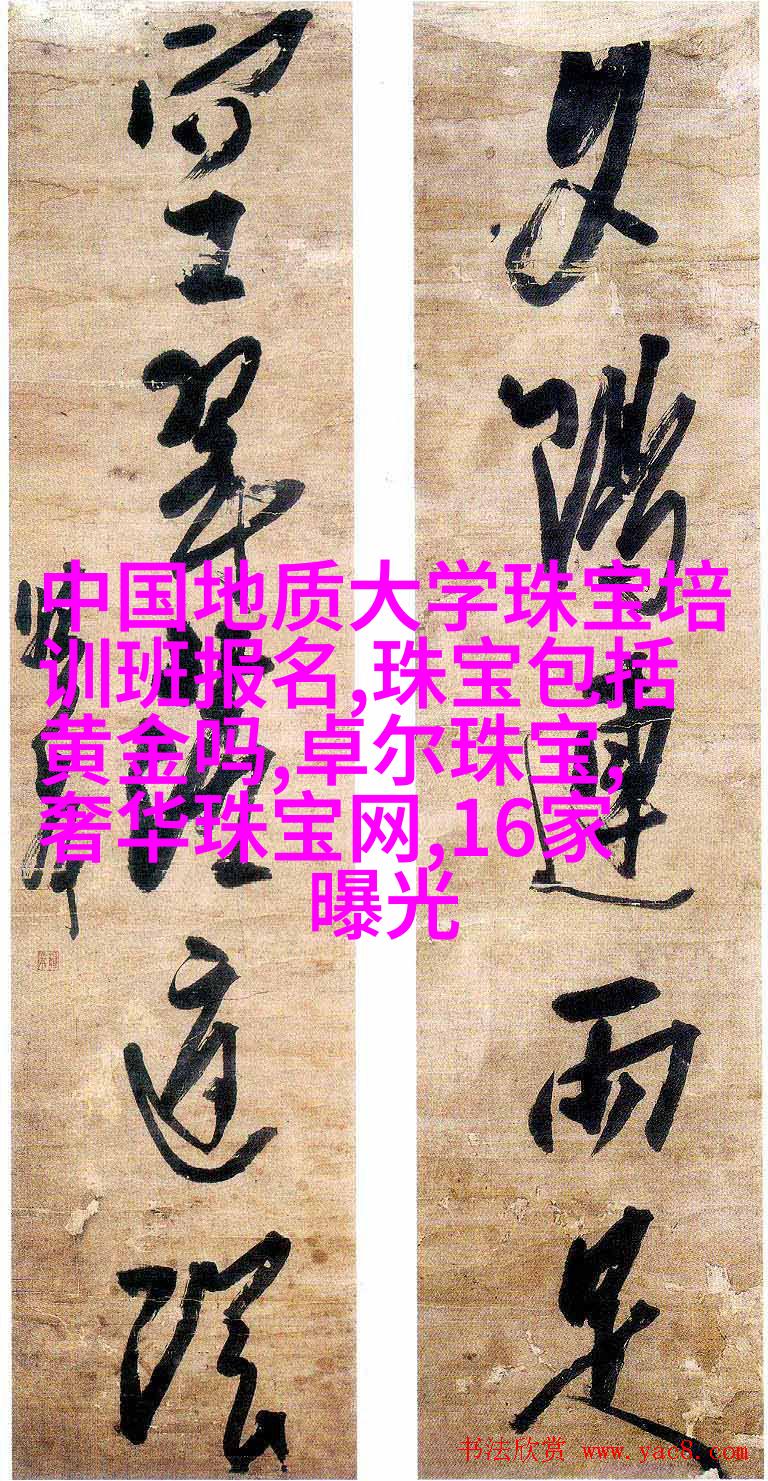 夕陽連雨足
空翠落庭陰
中国地质大学珠宝培
训班报名,珠宝包括
黄金吗,卓尔珠宝,
奢华珠宝网,16家
曝光
书法欣赏 www.yac8.com